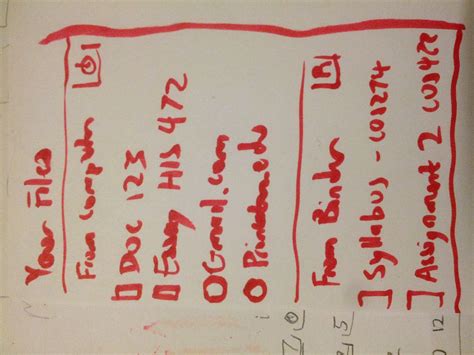 Your Files
From Computer
DOC 123
Essay HIS 472
Gmail.com
Princeton.edu
From Binder
Syllabus - COS274
Assignment 2 COS422
12